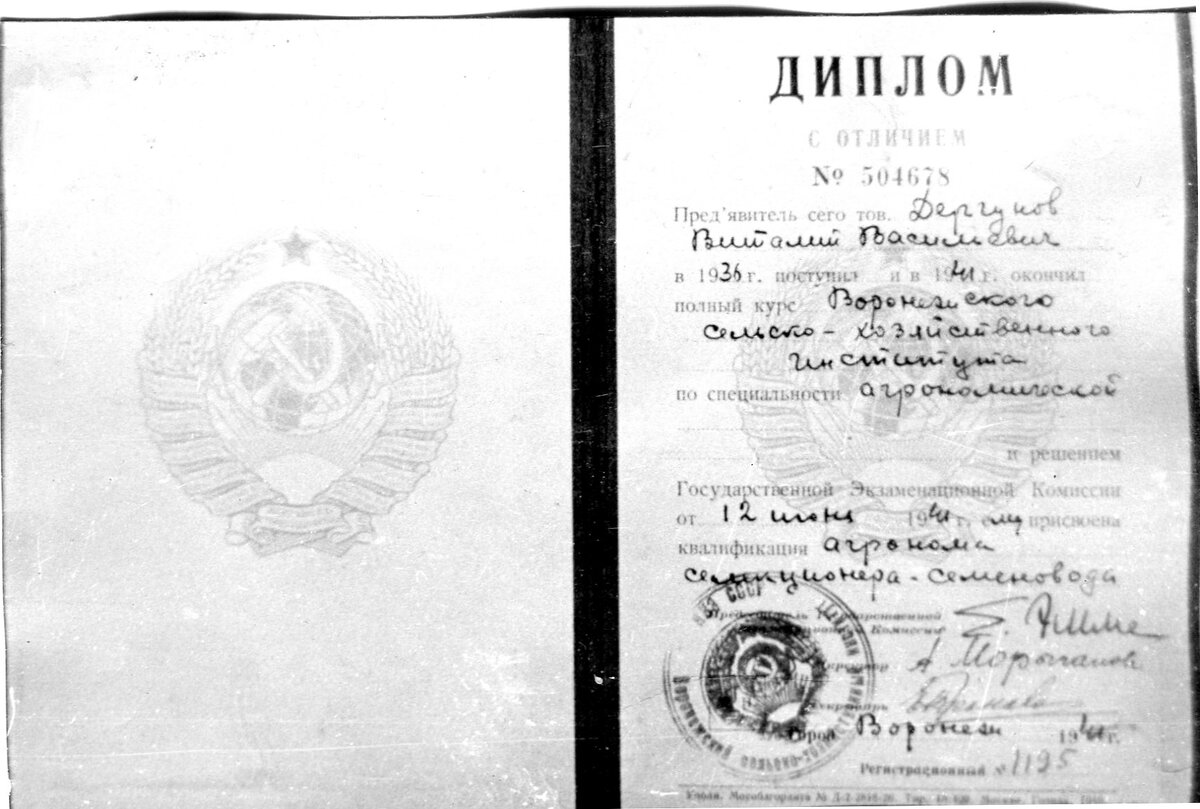 ДИПЛОМ
С ОТЛИЧИЕМ
№ 504678
Пред'явитель сего тов. Дергунов
Виталий Васильевич
в 1936 г. поступил и в 1941 г. окончил
полный курс Воронежского
сельско-хозяйственного
института
по специальности агрономической
и решением
Государственной Экзаменационной Комиссии
от 12 июня 1941 г. ему присвоена
квалификация агронома
селекционера-семеновода
Председатель Государственной
Экзаменационной Комиссии
Директор
Секретарь
Город Воронеж 1941 г.
Регистрационный № 1195
НКЗ СССР
Воронежский сельско-хозяйственный институт